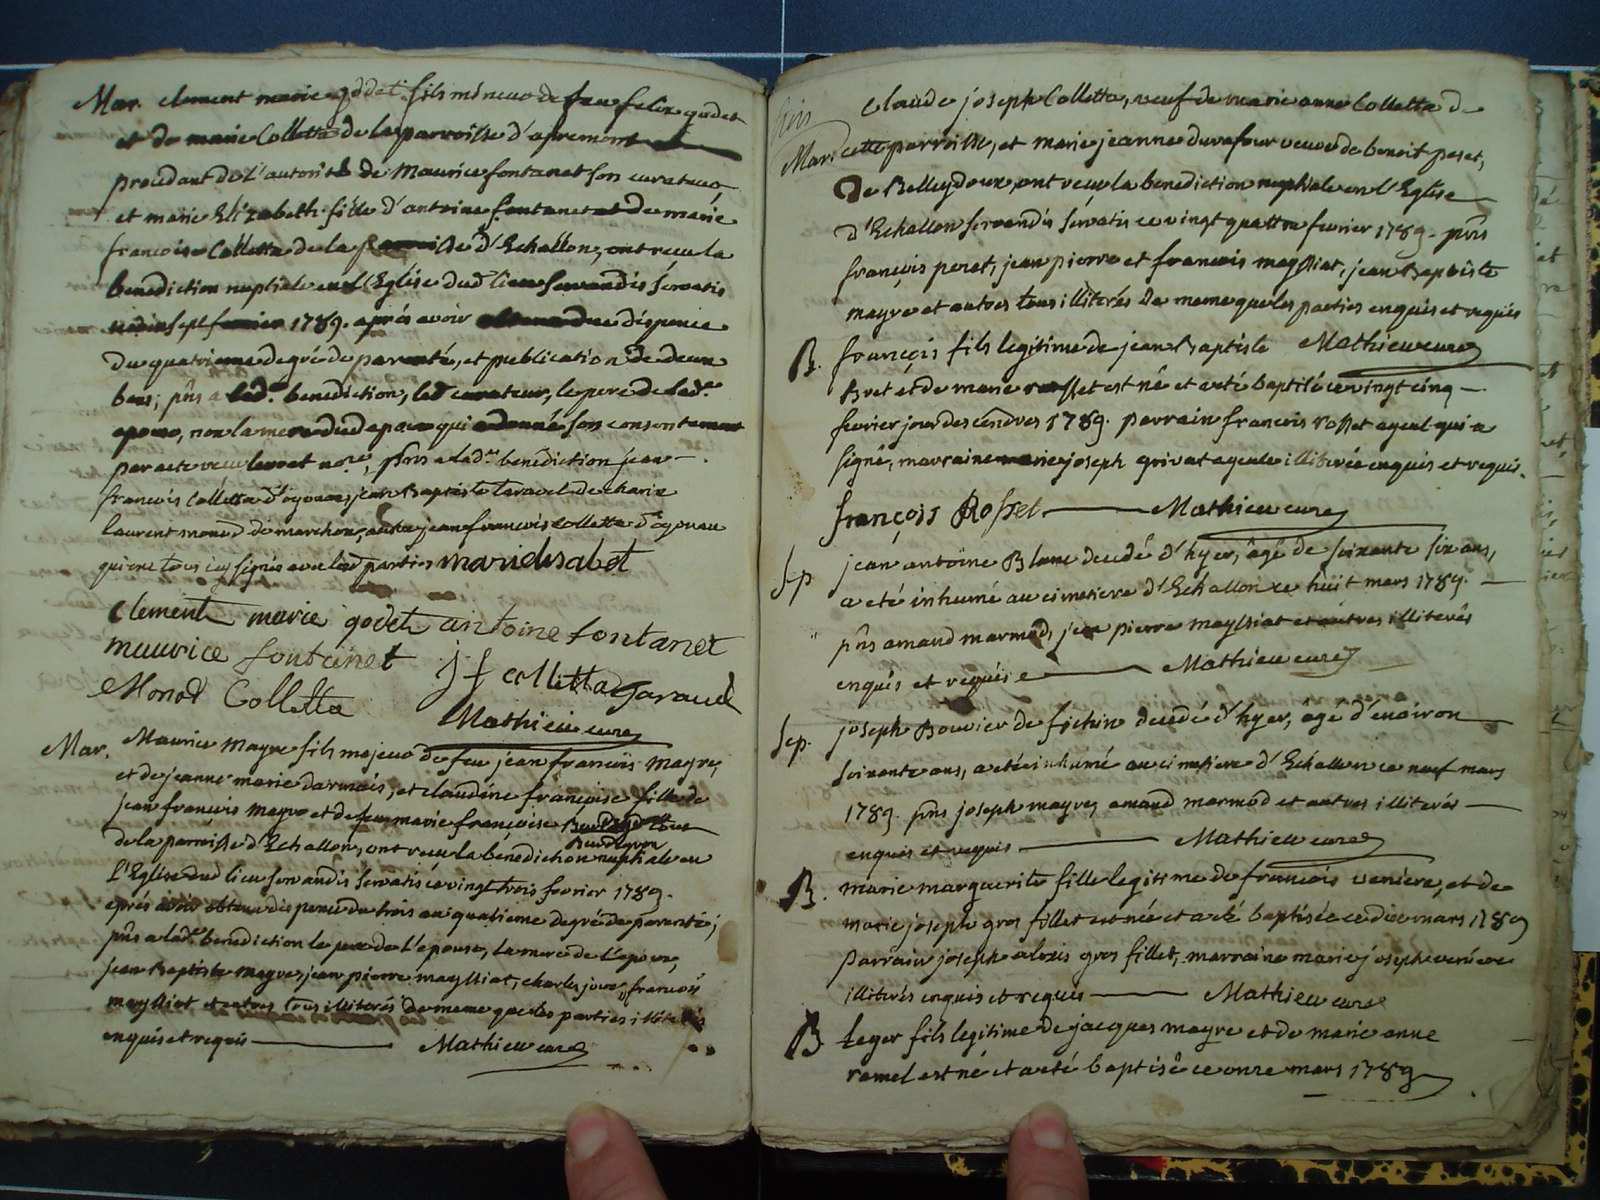 Mar. clement marie godet fils mineur de feu felix godet
et de marie Colletta de la parroisse d'apremont
procedant de l'autorité de Maurice fontanet son curateur
et marie Elizabeth fille d'antoine fontanet et de marie
françoise Colletta de la parroisse d'Echallon, ont recu la
benediction nuptiale en l'Eglise dud. lieu servandis servatis
1789. aprés avoir dispence
du quatrieme degré de parenté, et publication de deux
bans; pns a lad. benediction, led. curateur, le pere de lad.
epouse, non la mere dud epoux qui a donné son consentement
par acte recu not.re, pns a lad. benediction jean
francois Colletta d'oyonax, jean Baptiste de charix
laurent monod de marchon, jean francois colletta d'oyonax
qui ont tous signés avec led parties
clement marie godet antoine fontanet
maurice fontanet j f colletta Garaud
Monod Colletta
Mathieu curé
Mar. Maurice Mayre fils majeur de feu jean françois Mayre,
et de jeanne marie darmais, et claudine françoise fille de
jean francois mayre et de feue marie françoise
de la parroisse d'Echallon, ont recu la benediction nuptiale en
l'Eglise dud lieu servandis servatis ce vingt trois fevrier 1789.
aprés avoir obtenu dispence du trois au quatrieme degré de parenté;
pns a lad. benediction le pere de l'epouse, la mere de l'epoux,
jean Baptiste mayre, jean pierre maysliat, charles françois
maysliat et autres tous illiterés de meme que les parties
enquis et requis Mathieu curé
claude joseph Colletta, veuf de marie anne Colletta de
Mar. cette parroisse, et marie jeanne durafour veuve de benoit peret,
de Belleydoux ont recu la benediction nuptiale en l'Eglise
d'Echallon servandis servatis ce vingt quattre fevrier 1789. pns
françois peret, jean pierre et francois maysliat, jean Baptiste
mayre et autres tous illiterés de meme que les parties enquis et requis
B. françois fils legitime de jean Baptiste Mathieu curé
Bret et de marie rosset est né et a eté baptisé ce vingt cinq
fevrier jour des cendres 1789. parrain francois rosset ayeul qui a
signé, marraine marie joseph grivat ayeule illiterée enquis et requis.
françois Rosset Mathieu curé
Sep jean antoine Blanc decedé d'hyer, âgé de soixante six ans,
a eté inhumé au cimetiere d'Echallon ce huit mars 1789.
pns amand marmod, jean pierre maysliat et autres illiterés
enquis et requis Mathieu curé
Sep. joseph Bouvier de fichin decedé d'hyer, âgé d'environ
soixante ans, a eté inhumé au cimetiere d'Echallon ce neuf mars
1789. pns joseph mayre, amand marmod et autres illiterés
enquis et requis Mathieu curé
B. marie marguerite fille legitime de francois veniere, et de
marie joseph gros fillet est née et a eté baptisée ce dix mars 1789
parrain joseph alexis gros fillet, marraine marie joseph veniere
illiterés enquis et requis Mathieu curé
B Leger fils legitime de jacques mayre et de marie anne
ramel est né et a eté baptisé ce onze mars 1789